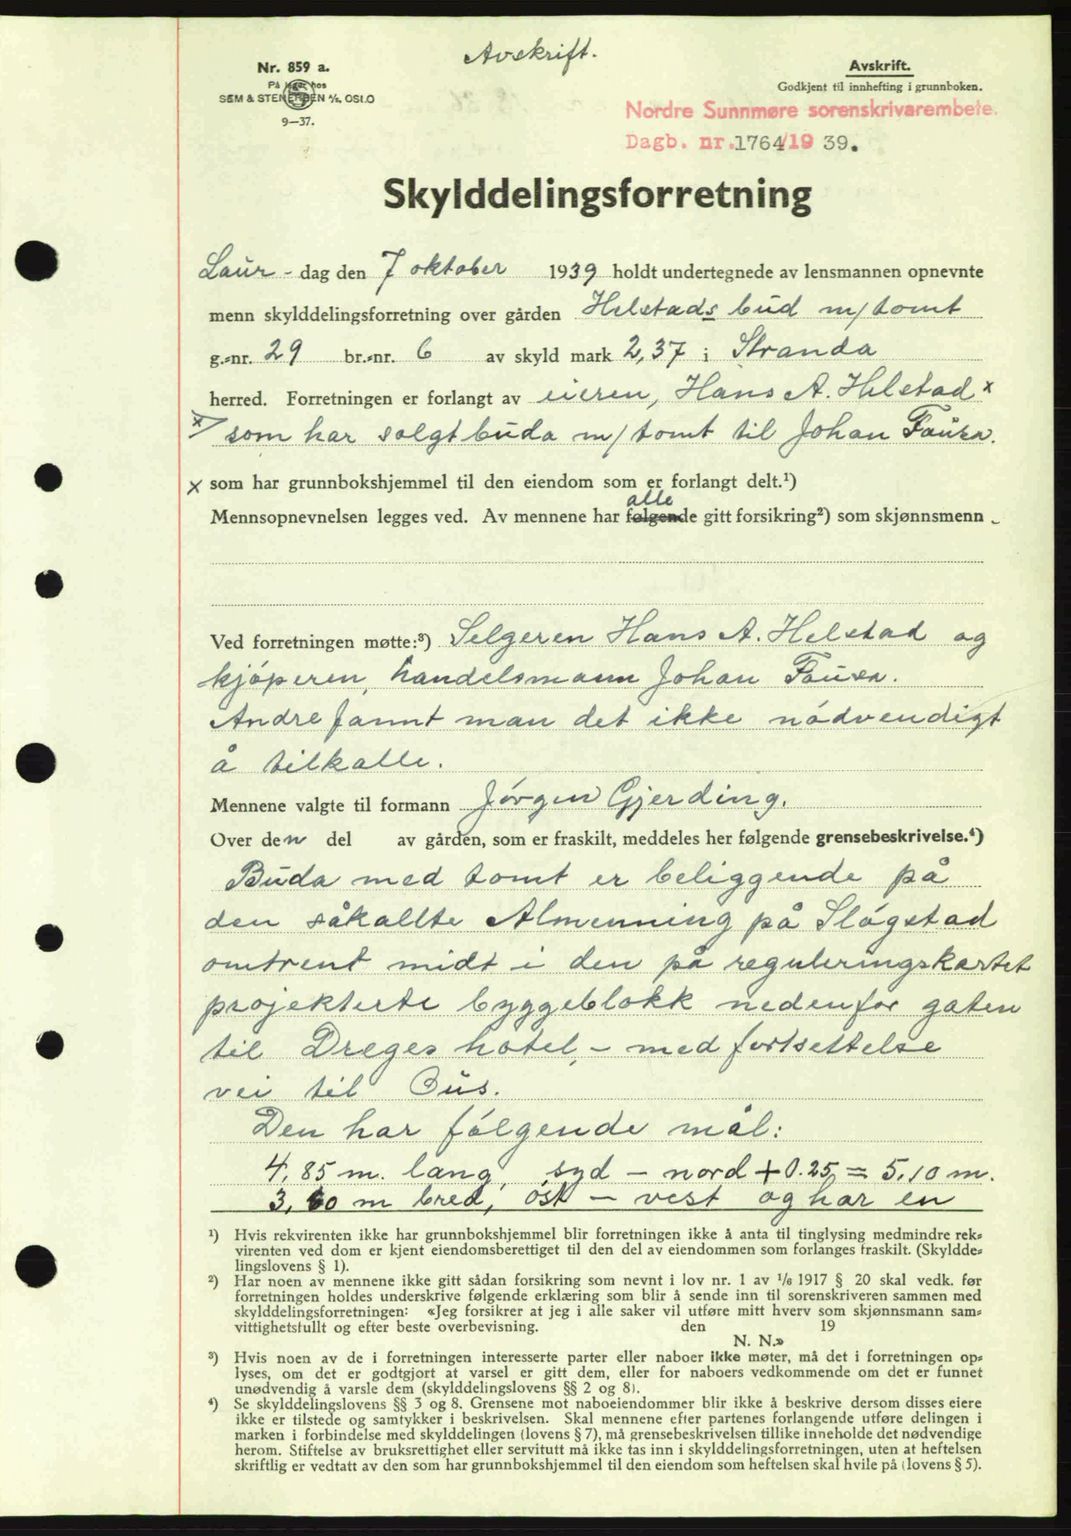 Avskrift.
Nr. 859 a.
På lager hos
SEM & STENERSEN A/S, OSLO
9—37.
Avskrift.
Godkjent til innhefting i grunnboken.
Nordre Sunnmøre sorenskrivarembete.
Dagb. nr. 1764/19 39.
Skylddelingsforretning
Laur- dag den 7 oktober 1939 holdt undertegnede av lensmannen opnevnte
menn skylddelingsforretning over gården Helstadsbud m/tomt
g.-nr. 29 br.-nr. 6 av skyld mark 2,37 i Stranda
herred. Forretningen er forlangt av eieren, Hans A. Helstad x
x/ som har solgt buda m/tomt til Johan Fausa.
x som har grunnbokshjemmel til den eiendom som er forlangt delt.¹)
alle
Mennsopnevnelsen legges ved. Av mennene har følgende gitt forsikring²) som skjønnsmenn
Ved forretningen møtte:³) Selgeren Hans A. Helstad og
kjøperen, handelsmann Johan Fausa.
Andre fannt man det ikke nödvendigt
å tilkalle.
Mennene valgte til formann Jörgen Gjerding.
Over den del av gården, som er fraskilt, meddeles her følgende grensebeskrivelse.⁴)
Buda med tomt er beliggende på
den såkallte Almenning på Slögstad
omtrent midt i den på reguleringskartet
projekterte byggeblokk nedenfor gaten
til Dreges hotel, – med fortsettelse
vei til Öus.
Den har fölgende mål:
4,85 m. lang, syd – nord + 0.25 = 5,10 m.
3,60 m bred, öst – vest og har en
¹) Hvis rekvirenten ikke har grunnbokshjemmel blir forretningen ikke å anta til tinglysing medmindre rek-
virenten ved dom er kjent eiendomsberettiget til den del av eiendommen som forlanges fraskilt. (Skyldde-
lingslovens § 1).
²) Har noen av mennene ikke gitt sådan forsikring som nevnt i lov nr. 1 av 1/6 1917 § 20 skal vedk. før
forretningen holdes underskrive følgende erklæring som blir å sende inn til sorenskriveren sammen med
skylddelingsforretningen: «Jeg forsikrer at jeg i alle saker vil utføre mitt hverv som skjønnsmann sam-
vittighetsfullt og efter beste overbevisning. den 19
N. N.»
³) Hvis noen av de i forretningen interesserte parter eller naboer ikke møter, må det i forretningen op-
lyses, om det er godtgjort at varsel er gitt dem, eller for naboers vedkommende om det er funnet
unødvendig å varsle dem (skylddelingslovens §§ 2 og 8).
⁴) Se skylddelingslovens §§ 3 og 8. Grensene mot naboeiendommer blir ikke å beskrive dersom disses eiere
ikke er tilstede og samtykker i beskrivelsen. Skal mennene efter partenes forlangende utføre delingen i
marken i forbindelse med skylddelingen (lovens § 7), må grensebeskrivelsen tillike inneholde det nødvendige
herom. Stiftelse av bruksrettighet eller servitutt må ikke tas inn i skylddelingsforretningen, uten at heftelsen
skriftlig er vedtatt av den som har grunnbokshjemmel til den eiendom som heftelsen skal hvile på (lovens § 5).